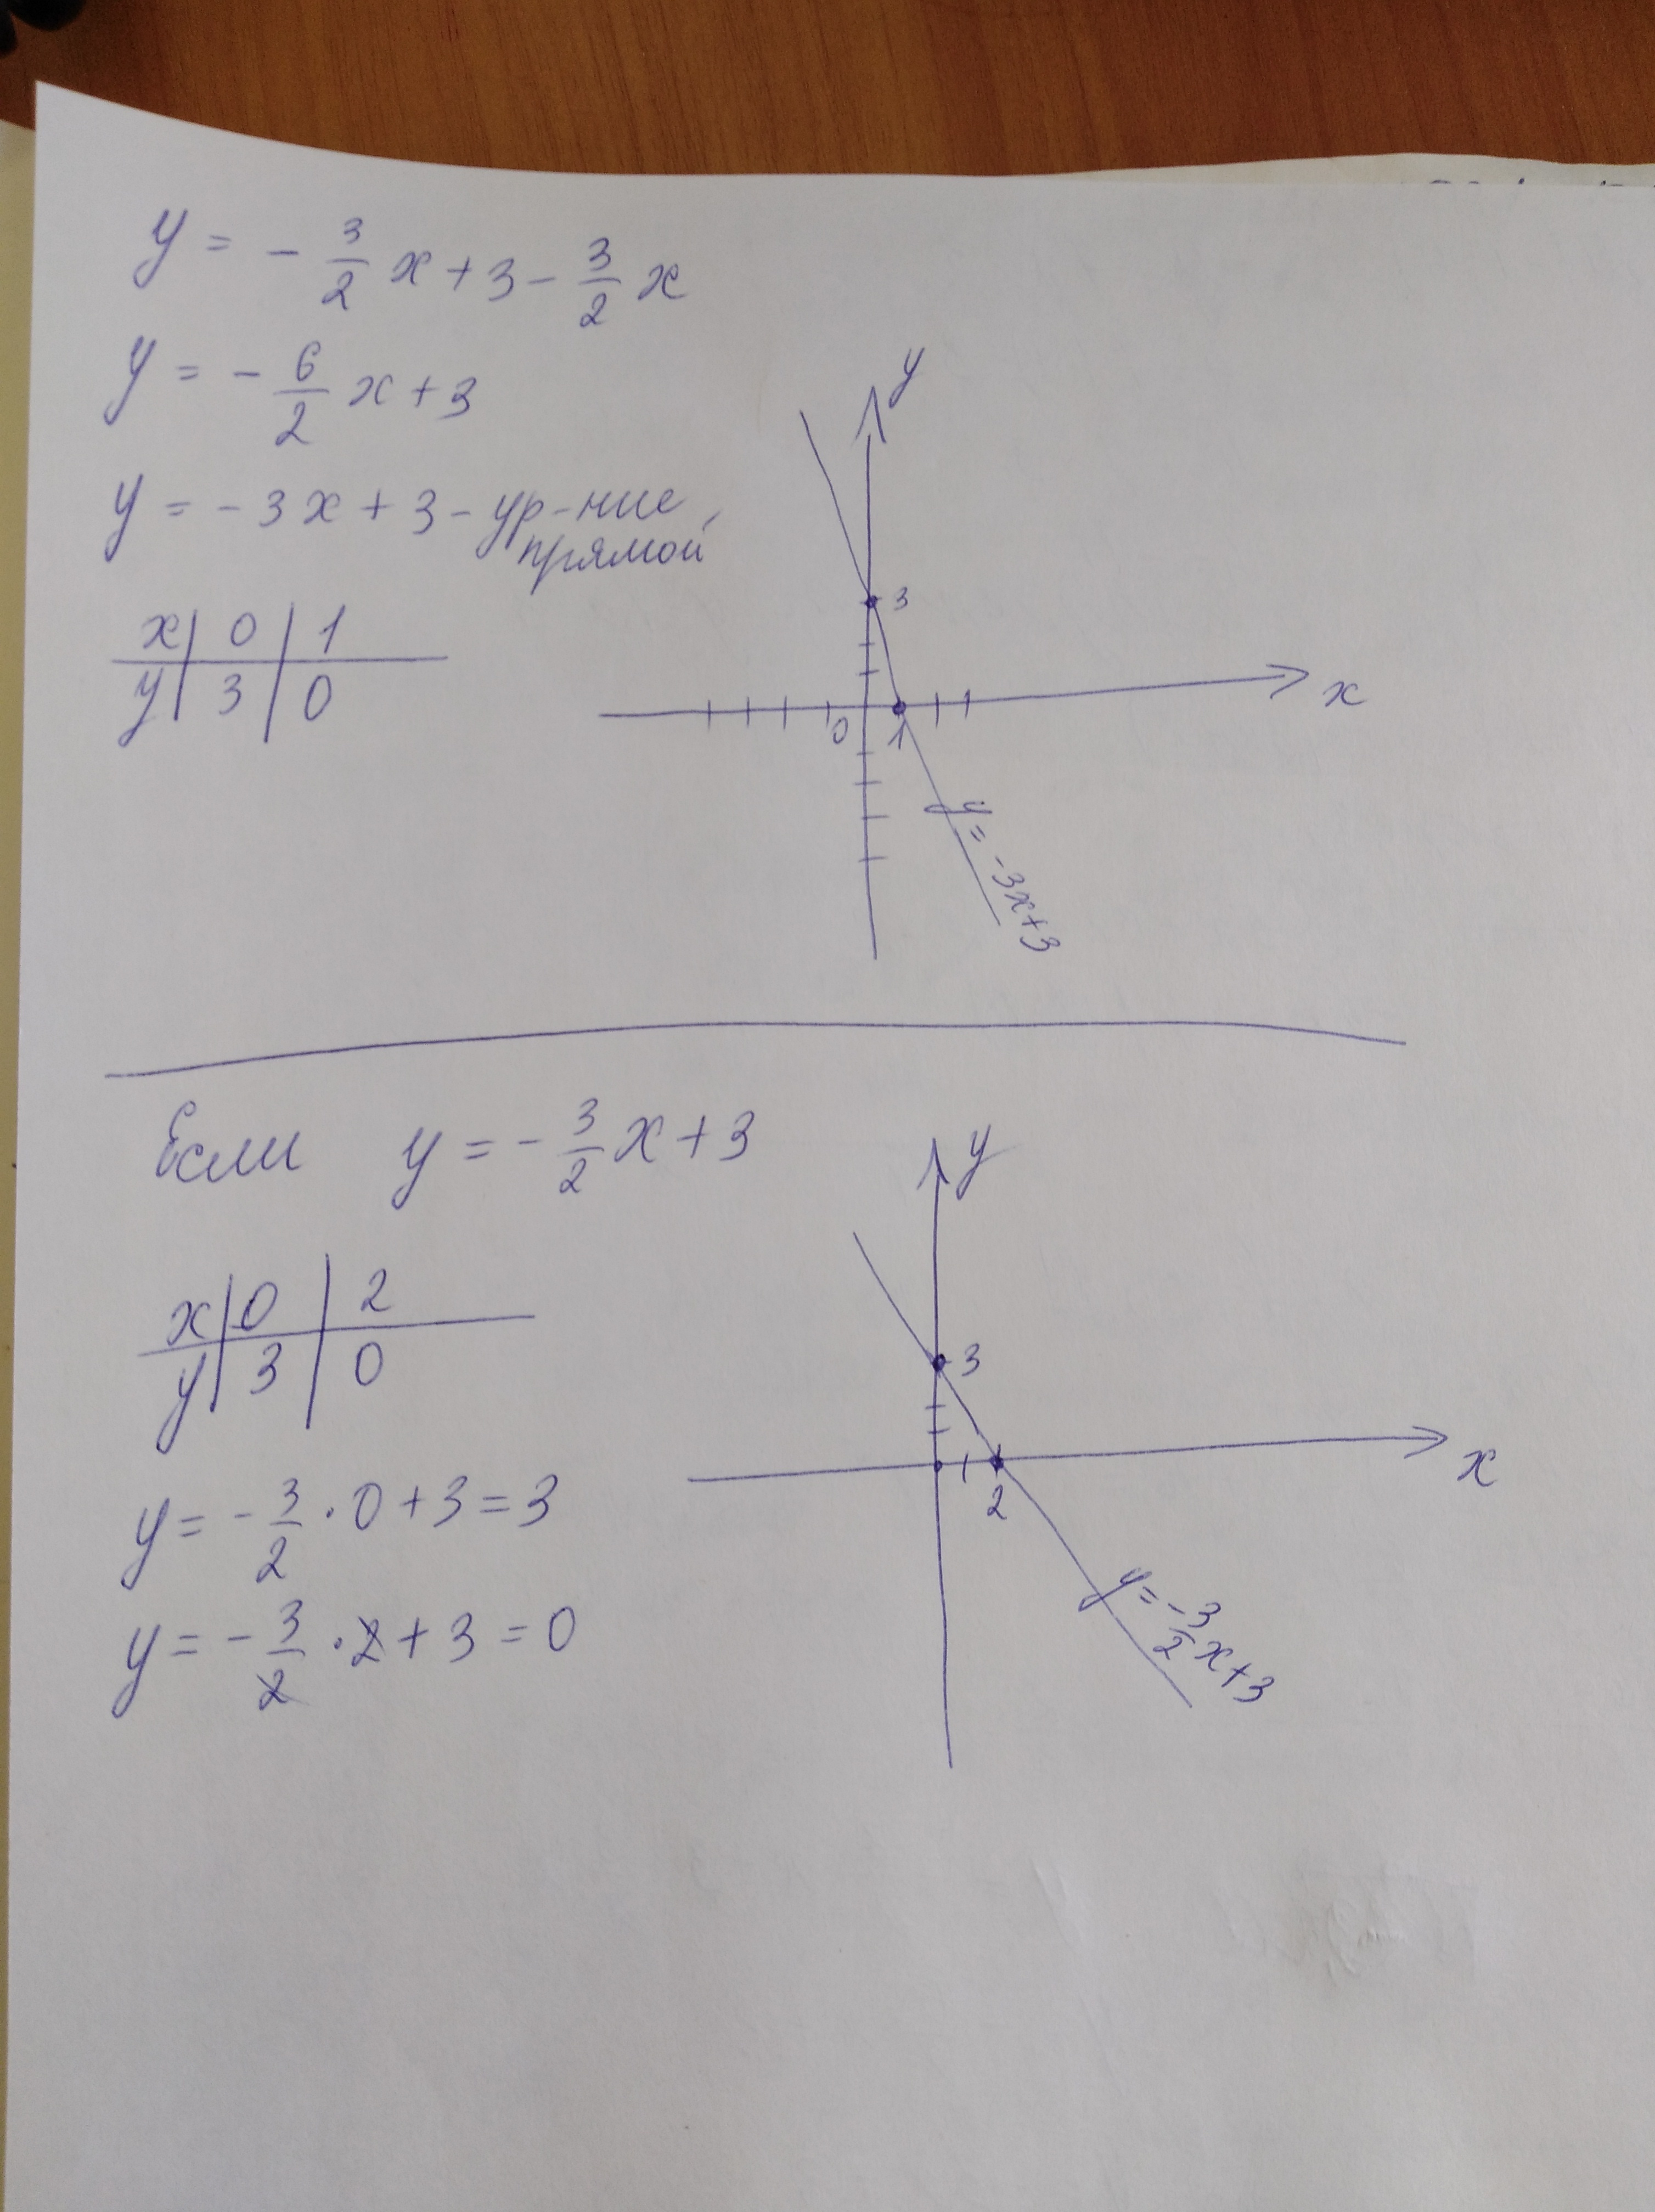 y = - 3/2 x + 3 - 3/2 x
y = - 6/2 x + 3
y = - 3x + 3 - ур-ние
прямой
x | 0 | 1
y | 3 | 0
y
3
0 1
x
y = -3x+3
Если y = - 3/2 x + 3
x | 0 | 2
y | 3 | 0
y = - 3/2 · 0 + 3 = 3
y = - 3/2 · 2 + 3 = 0
y
3
2
x
y = -3/2 x+3